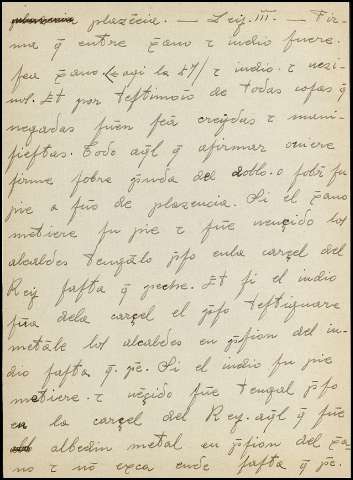 plazēcia. — Leig. III. — Fir-
ma q̄ entre x̄ano τ iudio fuere.
fea x̄ano (aqi la 57) τ iudio. τ uezi-
nol. Et por teftimoīs de todas cofas q̄
negadas fuēn feā creydas τ mani-
fieftas. Todo aq̄l q̄ afirmar ouiere
firme fobre p̄nda del doblo. o fobr̄ fu
pie a fūo de plazencia. Si el x̄ano
metiere fu pie τ fūe uençido lof
alcaldes tengālo p̄fo enla carçel del
Rey fafta q̄ peche. Et fi el iudio
fūa dela carçel el p̄fo teftiguare
metāle lof alcaldes en p̄fion del iu-
dio fafta q̄. pē. Si el iudio fu pie
metiere. τ uēçido fūe tengal p̄fo
en la carçel del Rey. aq̄l q̄ fūe
albedin metal en p̄fion del x̄a-
no τ nō exca ende fafta q̄ pē.